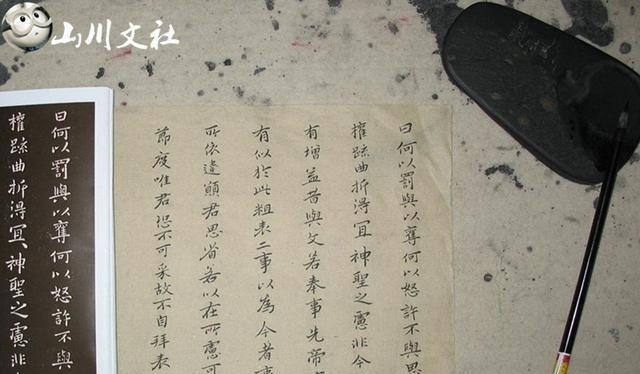 山川文社
曰何以罰與以奪何以怒許不與思
權疏曲折得冝神聖之慮非今
有增益昔與文若奉事先帝
有似於此粗表二事以為今者
所依違願君思省若以在所慮可
節度唯君恐不可采故不自拜表
曰何以罰與以奪何以怒許不與
權疏曲折得冝神聖之慮非